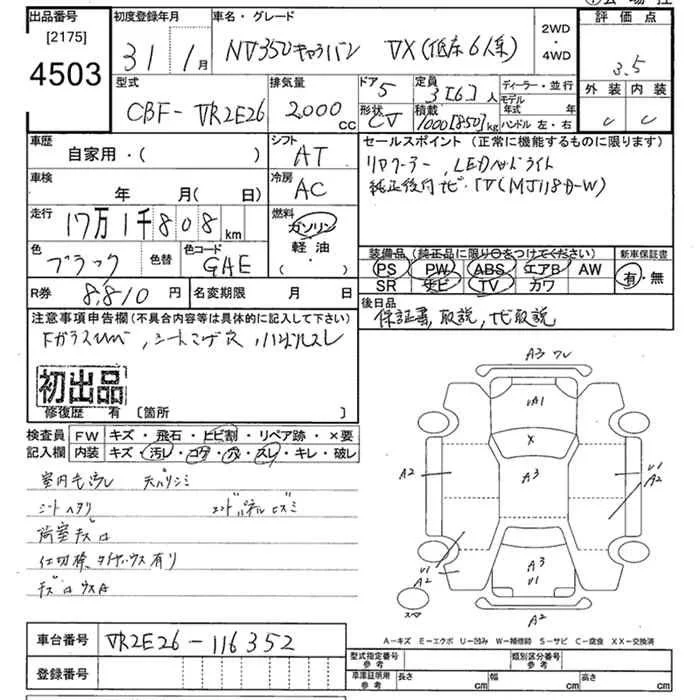 出品番号
[2175]
4503
初度登録年月
31 1月
車名・グレード
NV350キャラバン VX(低床6人乗)
2WD
・
4WD
評価点
3.5
外装 内装
C C
型式
CBF-VR2E26
排気量
2,000 cc
ドア
5
形状
CV
定員
3[6]人
積載
1000[850]kg
ディーラー・並行
モデル
年式 年
ハンドル 左・右
車歴
自家用・( )
シフト
AT
車検
年 月(日)
冷房
AC
走行
17万1千808 km
燃料
ガソリン
軽油
( ・ )
色
ブラック
色替
色コード
GAE
R券
8,810円
名変期限 月 日
セールスポイント(正常に機能するものに限ります)
リヤクーラー、LEDヘッドライト
純正後付ナビ・TV(MJ118D-W)
装備品(純正品に限り○をつけてください)
PS PW ABS エアB AW
SR ナビ TV カワ
新車保証書
有・無
後日品
保証書、取説、ナビ取説
注意事項申告欄(不具合内容等は具体的に記入して下さい)
Fガラスヒビ、シートコゲ穴、ハンドルスレ
初出品
修復歴 有 [箇所 ]
検査員
記入欄
FW キズ・飛石・ヒビ割・リペア跡・×要
内装 キズ・汚レ・コゲ・穴・スレ・キレ・破レ
室内毛汚レ 天バリシミ
シートヘタリ エンドパネルヒズミ
荷室キズ凹
仕切棒、タイヤハウス有り
キズ凹ウスA
A3 ワレ
UA1
X
A3
A2
U1
A2
A3
U1
U1
A2
A2
スペア
A-キズ E-エクボ U-凹み W-補修跡 S-サビ C-腐食 XX-交換済
車台番号
VR2E26-116352
登録番号
型式指定番号
参考
類別区分番号
参考
車庫証明用
参考
長さ cm
幅 cm
高さ cm